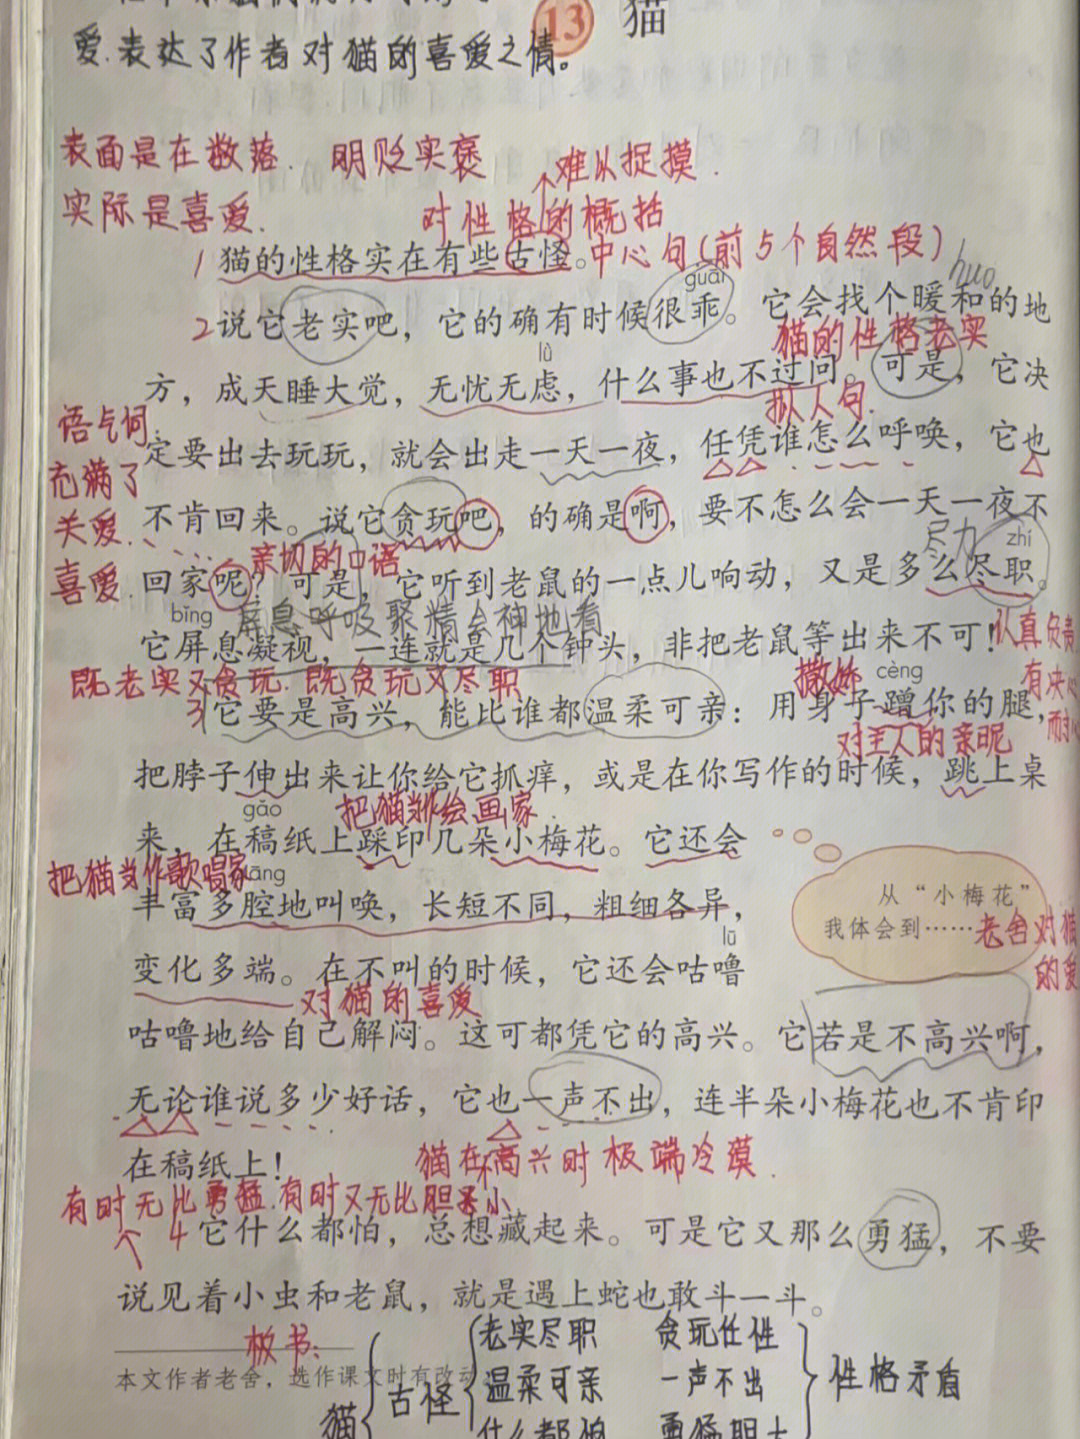 13 猫
爱.表达了作者对猫的喜爱之情。
表面是在数落. 明贬实褒
难以捉摸.
实际是喜爱. 对性格的概括
1 猫的性格实在有些古怪。中心句(前5个自然段)
guāi
huo
2 说它老实吧，它的确有时候很乖。它会找个暖和的地
猫的性格老实
lǜ
方，成天睡大觉，无忧无虑，什么事也不过问。可是，它决
语气词.
拟人句.
定要出去玩玩，就会出走一天一夜，任凭谁怎么呼唤，它也
充满了
不肯回来。说它贪玩吧，的确是啊，要不怎么会一天一夜不
关爱.
尽力
zhí
亲切的口语
喜爱.
回家呢？可是，它听到老鼠的一点儿响动，又是多么尽职。
bǐng
屏息呼吸聚精会神地看
它屏息凝视，一连就是几个钟头，非把老鼠等出来不可！
认真负责
有决心
既老实又贪玩.既贪玩又尽职
撒娇
cèng
3 它要是高兴，能比谁都温柔可亲：用身子蹭你的腿，
对主人的亲昵
把脖子伸出来让你给它抓痒，或是在你写作的时候，跳上桌
gǎo
把猫当作绘画家.
来，在稿纸上踩印几朵小梅花。它还会
把猫当作歌唱家
丰富多腔地叫唤，长短不同，粗细各异，
从“小梅花”
我体会到……老舍对猫
的爱
lū
变化多端。在不叫的时候，它还会咕噜
对猫的喜爱
咕噜地给自己解闷。这可都凭它的高兴。它若是不高兴啊，
无论谁说多少好话，它也一声不出，连半朵小梅花也不肯印
在稿纸上！
猫在不高兴时极端冷漠.
有时无比勇猛.有时又无比胆小
4 它什么都怕，总想藏起来。可是它又那么勇猛，不要
说见着小虫和老鼠，就是遇上蛇也敢斗一斗。
板书：
本文作者老舍，选作课文时有改动
猫
古怪
老实尽职 贪玩任性
温柔可亲 一声不出
什么都怕 勇猛胆大
性格矛盾